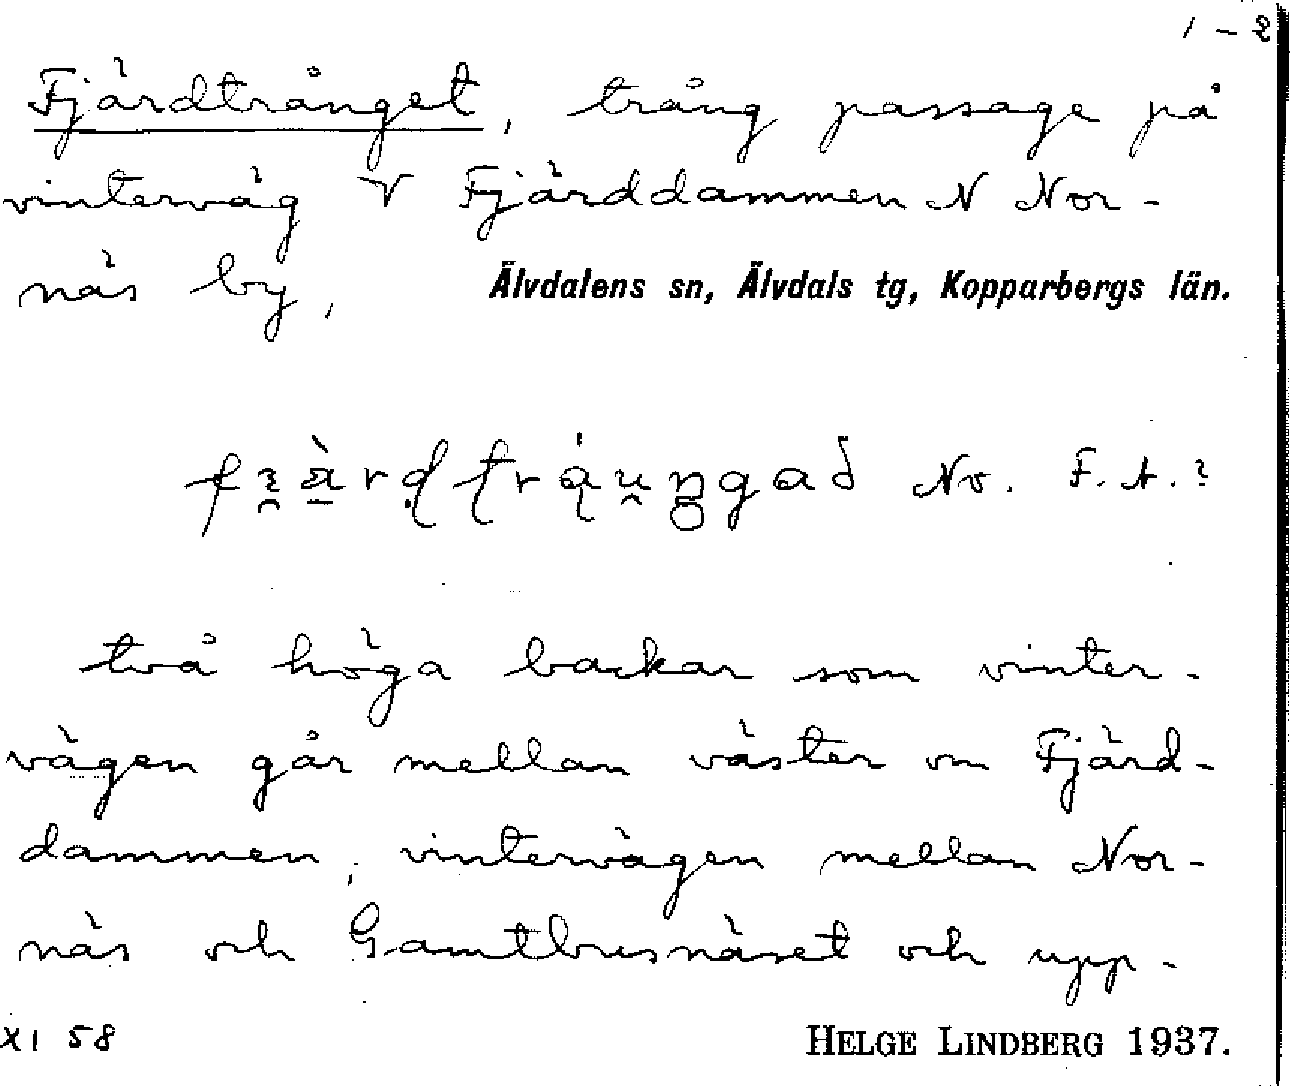 1-2
Fjärdtrånget, trång passage på
vinterväg V Fjärddammen N Nor-
näs by,
Älvdalens sn, Älvdals tg, Kopparbergs län.
No. F.A.?
två höga backar som vinter-
vägen går mellan väster om Fjärd-
dammen, vintervägen mellan Nor-
näs och Gamtbusnäset och upp-
XI 58
HELGE LINDBERG 1937.